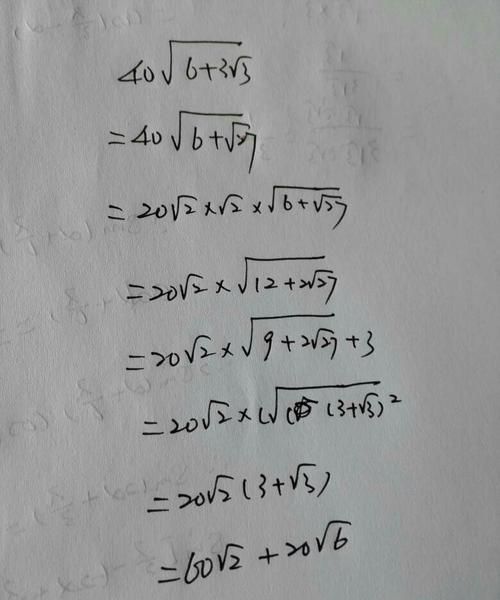 40√(6+3√3)
=40√(6+√27)
=20√2×√2×√(6+√27)
=20√2×√(12+2√27)
=20√2×√(9+2√27)+3
=20√2×(√((3+√3)²
=20√2(3+√3)
=60√2+20√6